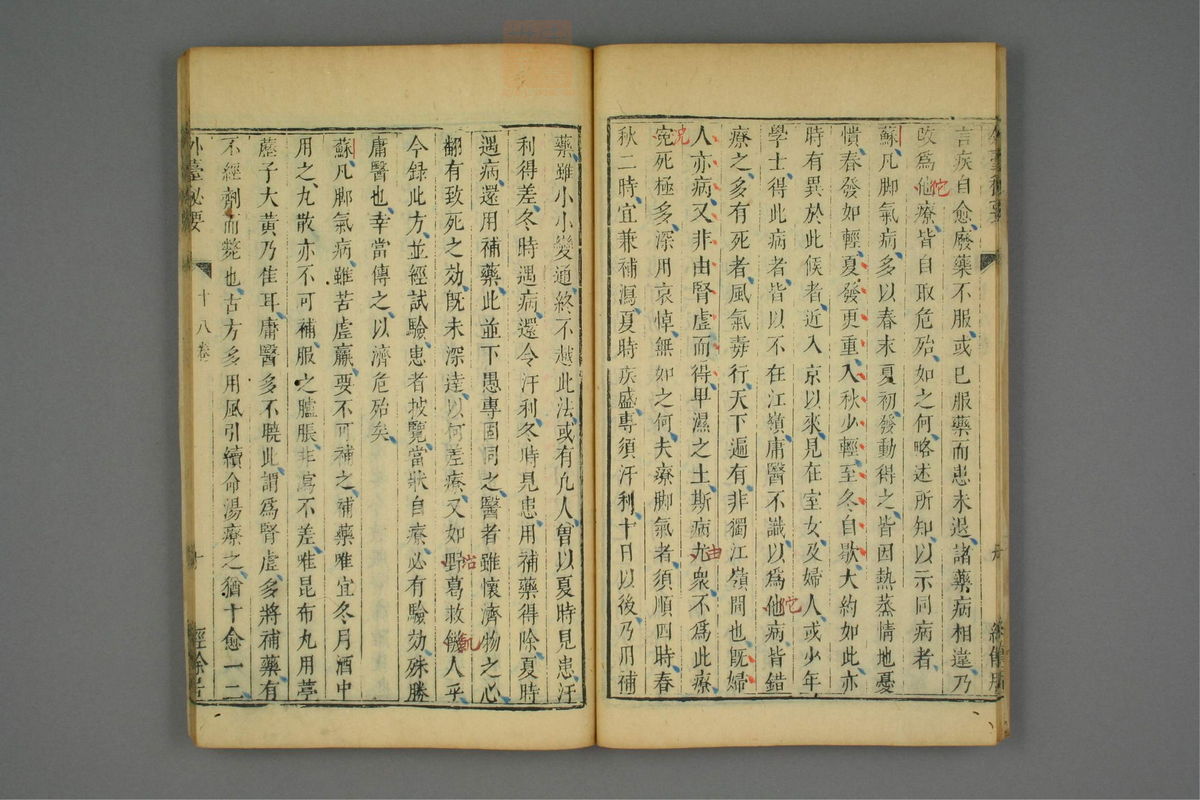 言疾自愈廢藥不服或已服藥而患未退諸藥病相違乃
改為他療皆自取危殆如之何略述所知以示同病者
陀
蘇凡脚氣病多以春末夏初發動得之皆因熱蒸情地憂
憒春發如輕夏發更重入秋少輕至冬自歇大約如此亦
時有異於此候者近入京以來見在室女及婦人或少年
學士得此病者皆以不在江嶺庸醫不識以為他病皆錯
陀
療之多有死者風氣毒行天下遍有非獨江嶺間也既婦
人亦病又非由腎虛而得卑濕之土斯病尤衆不為此療
由
寃死極多深用哀悼無如之何夫療脚氣者須順四時春
秋二時宜兼補瀉夏時疾盛專須汗利十日以後乃用補
藥雖小小變通終不越此法或有凡人曾以夏時見患汗
利得差冬時遇病還令汗利冬時見患用補藥得除夏時
遇病還用補藥此並下愚專固同之醫者雖懷濟物之心
翻有致死之効既未深達以何差療又如野葛救饑人乎
今錄此方並經試驗患者披覽當狀自療必有驗効殊勝
庸醫也幸當傳之以濟危殆矣
蘇凡脚氣病雖苦虛羸要不可補之補藥唯宜冬月酒中
用之丸散亦不可補服之臚脹非瀉不差唯昆布丸用葶
藶子大黃乃佳耳庸醫多不曉此謂為腎虛多將補藥有
不經劑而斃也古方多用風引續命湯療之猶十愈一二
外臺秘要
十八卷
十
經餘居